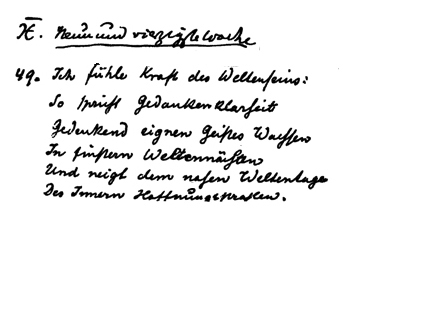 H. Neun und vierzigste Woche
49. Ich fühle Kraft des Weltenseins:
So spricht Gedankenklarheit
Gedenkend eignen Geistes Wachsen
In finstern Weltennächten
Und neigt dem nahen Weltentage
Des Innern Hoffnungsstrahlen.